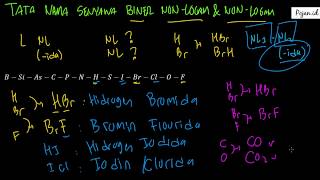 TATA NAMA SENYAWA BINER NON-LOGAM & NON-LOGAM
Pijar.id
L NL NL ? H Br BrH NL2 - NL
(-ida) NL ? Br H HBr (-ida)
B – Si – As – C – P – N – H – S – I – Br – Cl – O – F
H HBr : Hidrogen Bromida
Br
F BrF : Bromin Flourida
Br
HI : Hidrogen Iodida
ICl : Iodin Klorida
H HBr
Br
Br BrF
F
C CO
O CO2